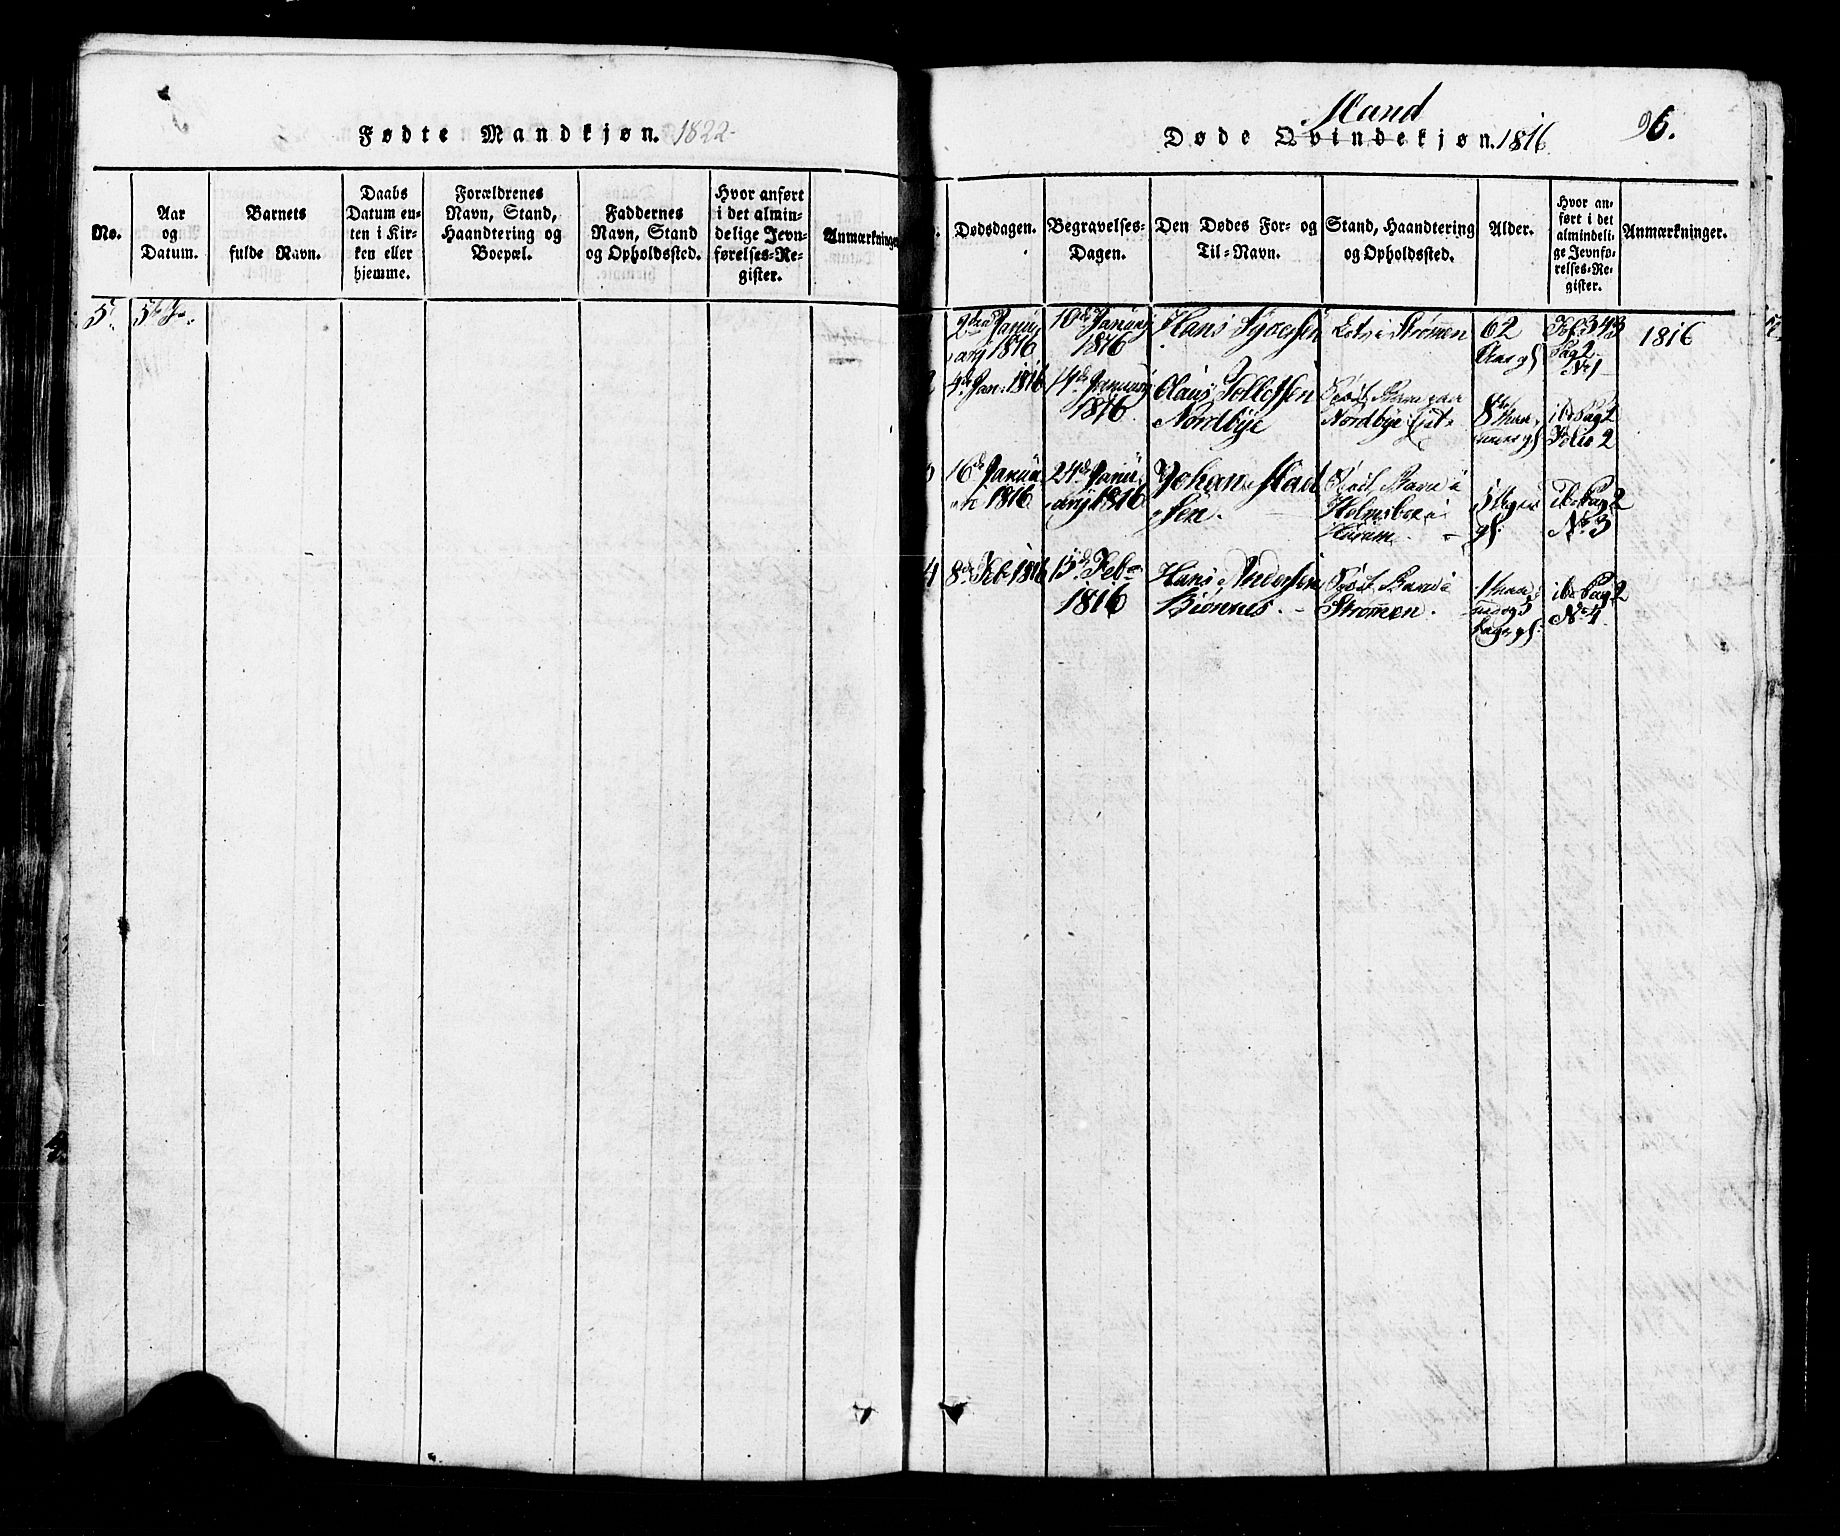 Fødte Mandkjøn. 1822-
No.
Aar
og
Datum.
Barnets
fulde Navn.
Daabs
Datum en-
ten i Kir-
ken eller
hjemme.
Forældrenes
Navn, Stand,
Haandtering og
Boepæl.
Faddernes
Navn, Stand
og Opholdssted.
Hvor anført
i det almin-
delige Jevn-
førelses-Re-
gister.
Anmærkninger
5.
Mand
Døde Qvindekjøn. 1816
96.
Dødsdagen.
Begravelses-
Dagen.
Den Dødes For- og
Til-Navn.
Stand, Haandtering
og Opholdssted.
Alder.
Hvor an-
ført i det
almindeli-
ge Jevnfø-
relses-Re-
gister.
Anmærkninger.
1816
10de Januarij
1816
Hans
i Strømmen
62
Aar gl.
Fol. 343
Pag 2
No 1
1816
2
4de Jan. 1816
14de Januarij
1816
Claus Tollefsen
Nordbye
Nordbye
8
gl.
ib. Pag 2
Folio 2
16de Janua-
1816
24de Janu-
arij 1816
Johan Mad-
sen.
Barn i
Holmsboe i
Hurum.
gl.
ib. Pag 2
No 3
4
8de Feb. 1816
15de Feb.
1816
Hans Andersen
Biørnes.
Barn i
Strømmen.
gl.
ib. Pag 2
No 4